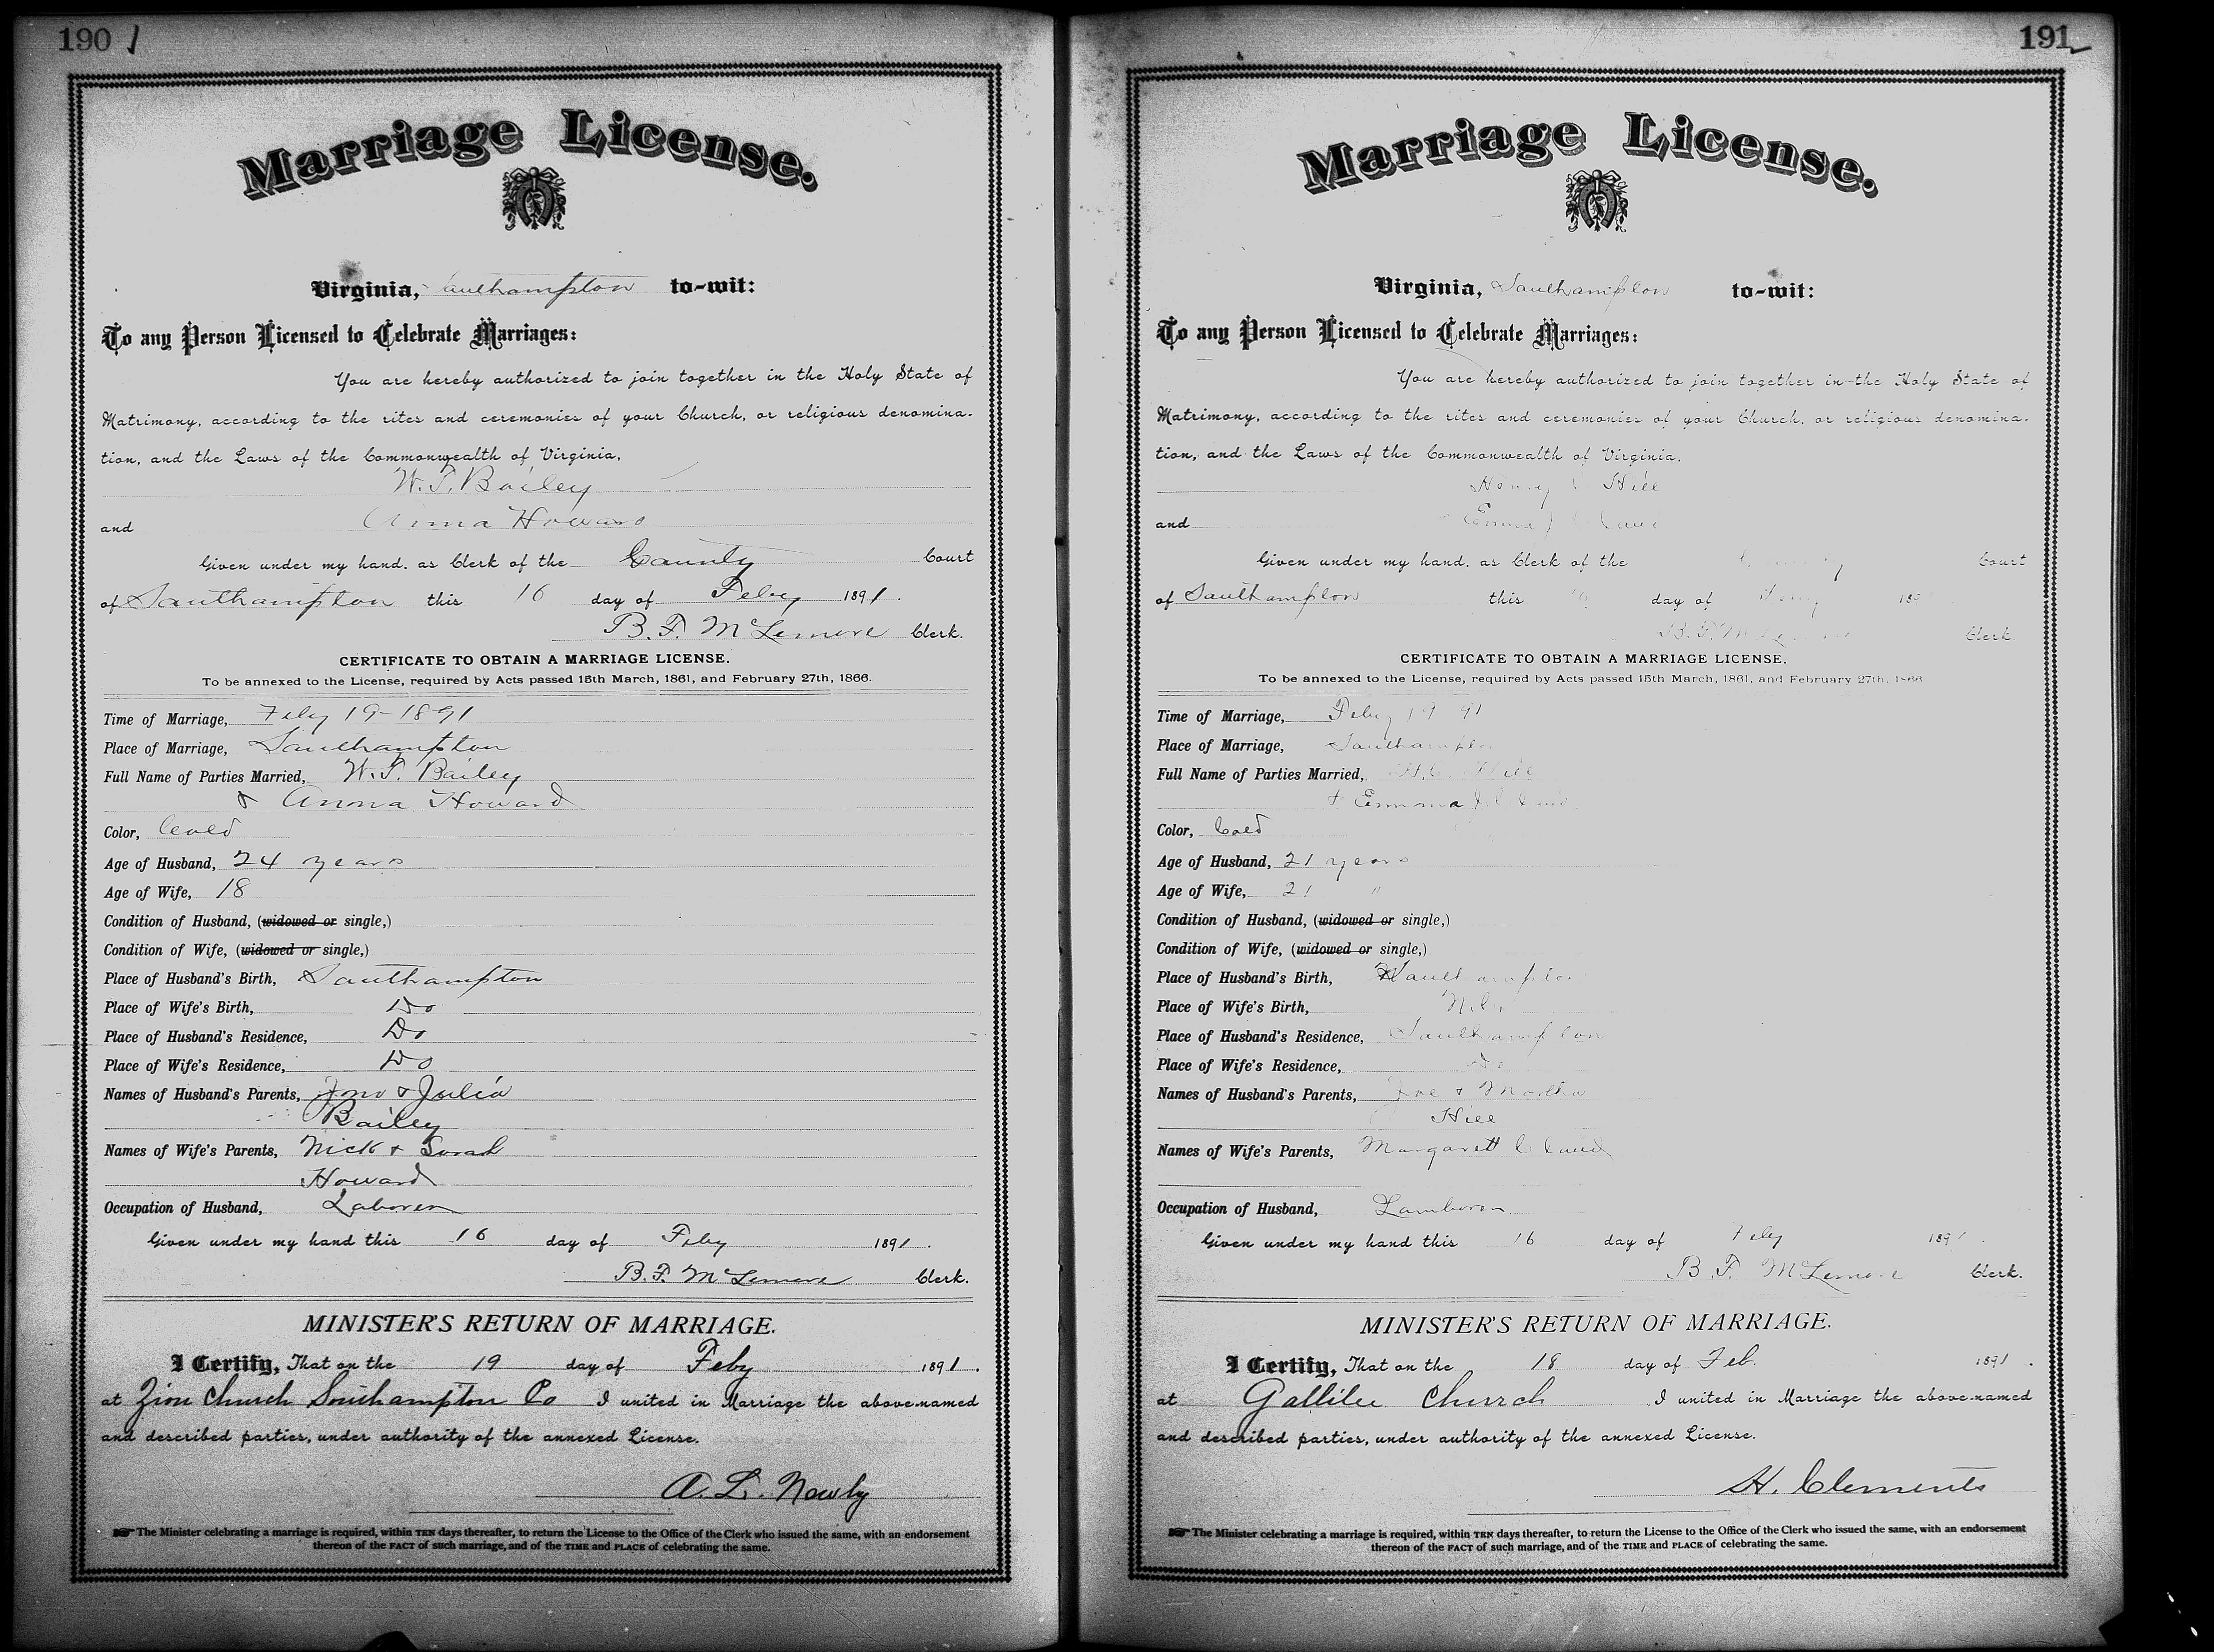 190
Marriage License.
Virginia, Southampton to-wit:
To any Person Licensed to Celebrate Marriages:
You are hereby authorized to join together in the Holy State of
Matrimony, according to the rites and ceremonies of your Church, or religious denomina-
tion, and the Laws of the Commonwealth of Virginia,
W. T. Bailey
and Anna Howard
Given under my hand, as Clerk of the County Court
of Southampton this 16 day of Feby 1891.
B. F. McLemore Clerk.
CERTIFICATE TO OBTAIN A MARRIAGE LICENSE.
To be annexed to the License, required by Acts passed 15th March, 1861, and February 27th, 1866.
Time of Marriage, Feby 19-1891
Place of Marriage, Southampton
Full Name of Parties Married, W. T. Bailey
& Anna Howard
Color, Cold
Age of Husband, 24 years
Age of Wife, 18
Condition of Husband, (widowed or single,)
Condition of Wife, (widowed or single,)
Place of Husband's Birth, Southampton
Place of Wife's Birth, Do
Place of Husband's Residence, Do
Place of Wife's Residence, Do
Names of Husband's Parents, Jno & Julia
Bailey
Names of Wife's Parents, Nick & Sarah
Howard
Occupation of Husband, Laborer
Given under my hand this 16 day of Feby 1891.
B. F. McLemore Clerk.
MINISTER'S RETURN OF MARRIAGE.
I Certify, That on the 19 day of Feby 1891.
at Zion Church Southampton Co I united in Marriage the above-named
and described parties, under authority of the annexed License.
A. L. Newby
The Minister celebrating a marriage is required, within TEN days thereafter, to return the License to the Office of the Clerk who issued the same, with an endorsement
thereon of the FACT of such marriage, and of the TIME and PLACE of celebrating the same.
191
Marriage License.
Virginia, Southampton to-wit:
To any Person Licensed to Celebrate Marriages:
You are hereby authorized to join together in the Holy State of
Matrimony, according to the rites and ceremonies of your Church, or religious denomina-
tion, and the Laws of the Commonwealth of Virginia,
Henry C Hill
and Emma J Claud
Given under my hand, as Clerk of the County Court
of Southampton this 16 day of Feby 189
B. F. McLemore Clerk
CERTIFICATE TO OBTAIN A MARRIAGE LICENSE.
To be annexed to the License, required by Acts passed 15th March, 1861, and February 27th, 1866
Time of Marriage, Feby 19 91
Place of Marriage, Southampton
Full Name of Parties Married, H. C. Hill
& Emma J Claud
Color, Cold
Age of Husband, 21 years
Age of Wife, 21 "
Condition of Husband, (widowed or single,)
Condition of Wife, (widowed or single,)
Place of Husband's Birth, Southampton
Place of Wife's Birth, N.C.
Place of Husband's Residence, Southampton
Place of Wife's Residence, Do
Names of Husband's Parents, Joe & Martha
Hill
Names of Wife's Parents, Margarett Claud
Occupation of Husband,
Given under my hand this 16 day of Feby 1891.
B. F. McLemore Clerk.
MINISTER'S RETURN OF MARRIAGE.
I Certify, That on the 18 day of Feb. 1891.
at Gallilee Church I united in Marriage the above-named
and described parties, under authority of the annexed License.
H. Clements
The Minister celebrating a marriage is required, within TEN days thereafter, to return the License to the Office of the Clerk who issued the same, with an endorsement
thereon of the FACT of such marriage, and of the TIME and PLACE of celebrating the same.